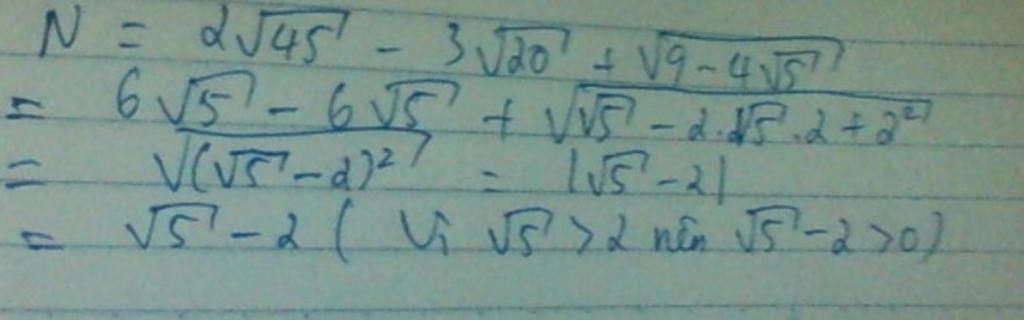 N = 2√45 - 3√20 + √(9 - 4√5)
= 6√5 - 6√5 + √(√5 - 2.√5.2 + 2²)
= √((√5 - 2)²) = |√5 - 2|
= √5 - 2 ( Vì √5 > 2 nên √5 - 2 > 0)